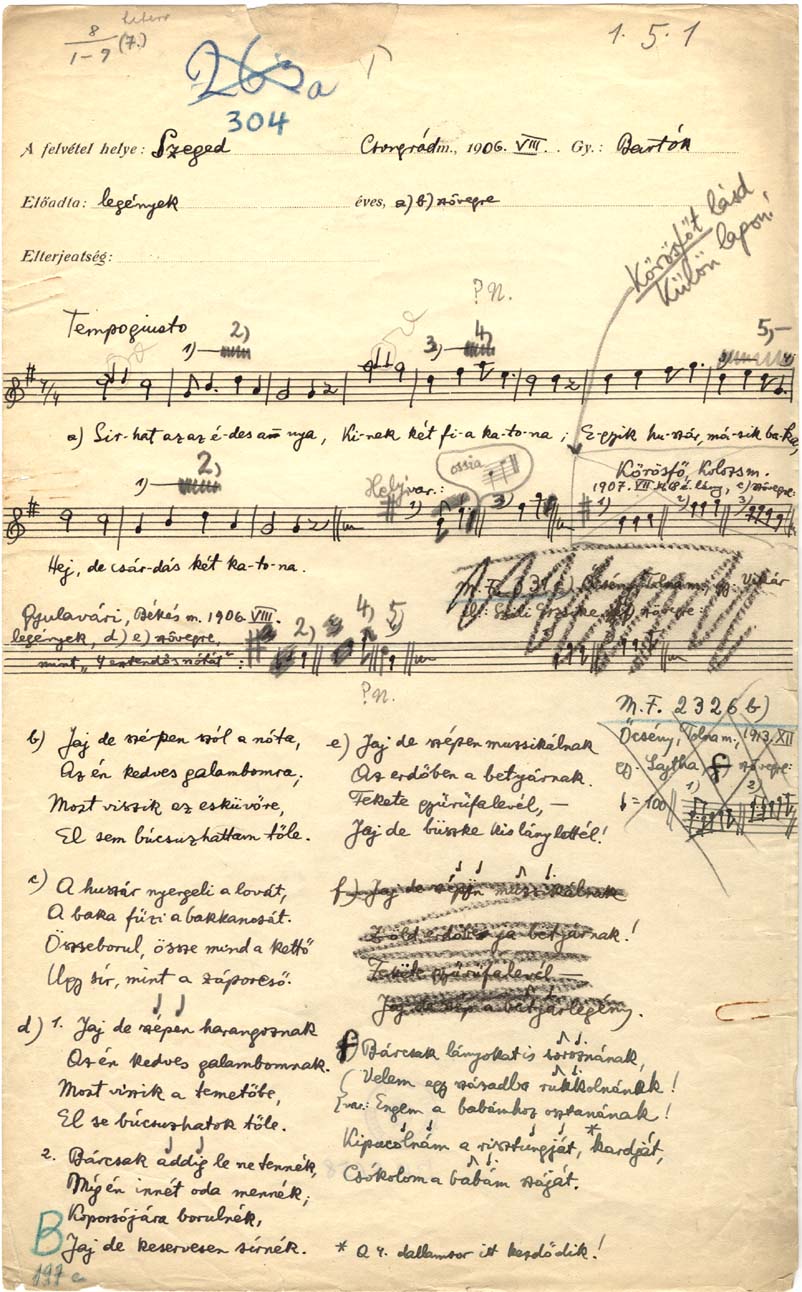 8
1-9 (7.)
263a
304
1. 5. 1
A felvétel helye: Szeged Csongrád m., 1906. VIII. Gy.: Bartók
Előadta: legények éves, a) b) szövegre
Elterjeatség:
Körösföt lásd
külön lapon!
P.N.
Tempogiusto 1) 2) 3) 4) 5,-
a) Sir-hat az az é-des a-nya, Ki-nek két fi-a ka-to-na; E-gyik hu-szár, má-sik ba-ka,
1) 2, Helyi var.: 1) ossia 3)
Körösfő, Kolozsm.
1907. VII. c) szövegre:
1) 2) 3)
Hej, de csár-dás két ka-to-na.
Gyulavári, Békés m. 1906. VIII.
legények, d) e) szövegre,
mint "4 esztendős nótát": 2, 4, 5,
P.N.
M.F. 2326 b)
Őcsény, Tolnam., 1913. XII
gy. Lajtha, f szövegre:
= 100 1) 2)
b) Jaj de szépen szól a nóta,
Az én kedves galambomra,
Most viszik az esküvőre,
El sem búcsuzhattam tőle.
e) Jaj de szépen muzsikálnak
Az erdőben a betyárnak.
Fekete gyürüfalevél, —
Jaj de büszke kislány lettél!
c) A huszár nyergeli a lovát,
A baka füzi a bakkancsát.
Összeborul, össze mind a kettő
Ugy sír, mint a záporeső.
f) Jaj de szépen muzsikálnak
Zöld erdőbe a betyárnak!
Fekete gyürüfalevél —
Jaj de szép a betyárlegény.
d) 1. Jaj de szépen harangoznak
Az én kedves galambomnak.
Most viszik a temetőbe,
El se búcsuzhatok tőle.
2. Bárcsak addig le ne tennék,
Míg én innét oda mennék;
Koporsójára borulnék,
Jaj de keservesen sírnék.
f) Bárcsak lányokat is soroznának,
Velem egy századba rukkolnának!
var.: Engem a babámhoz osztanának!
Kipucolnám a risztungját, * kardját,
Csókolom a babám száját.
* A 4. dallamsor itt kezdődik!
B
197